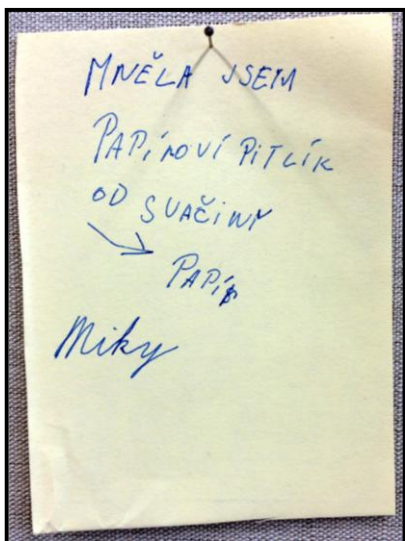 MNĚLA JSEM
PAPÍROVÍ PITLÍK
OD SVAČINY
PAPÍR
Miky